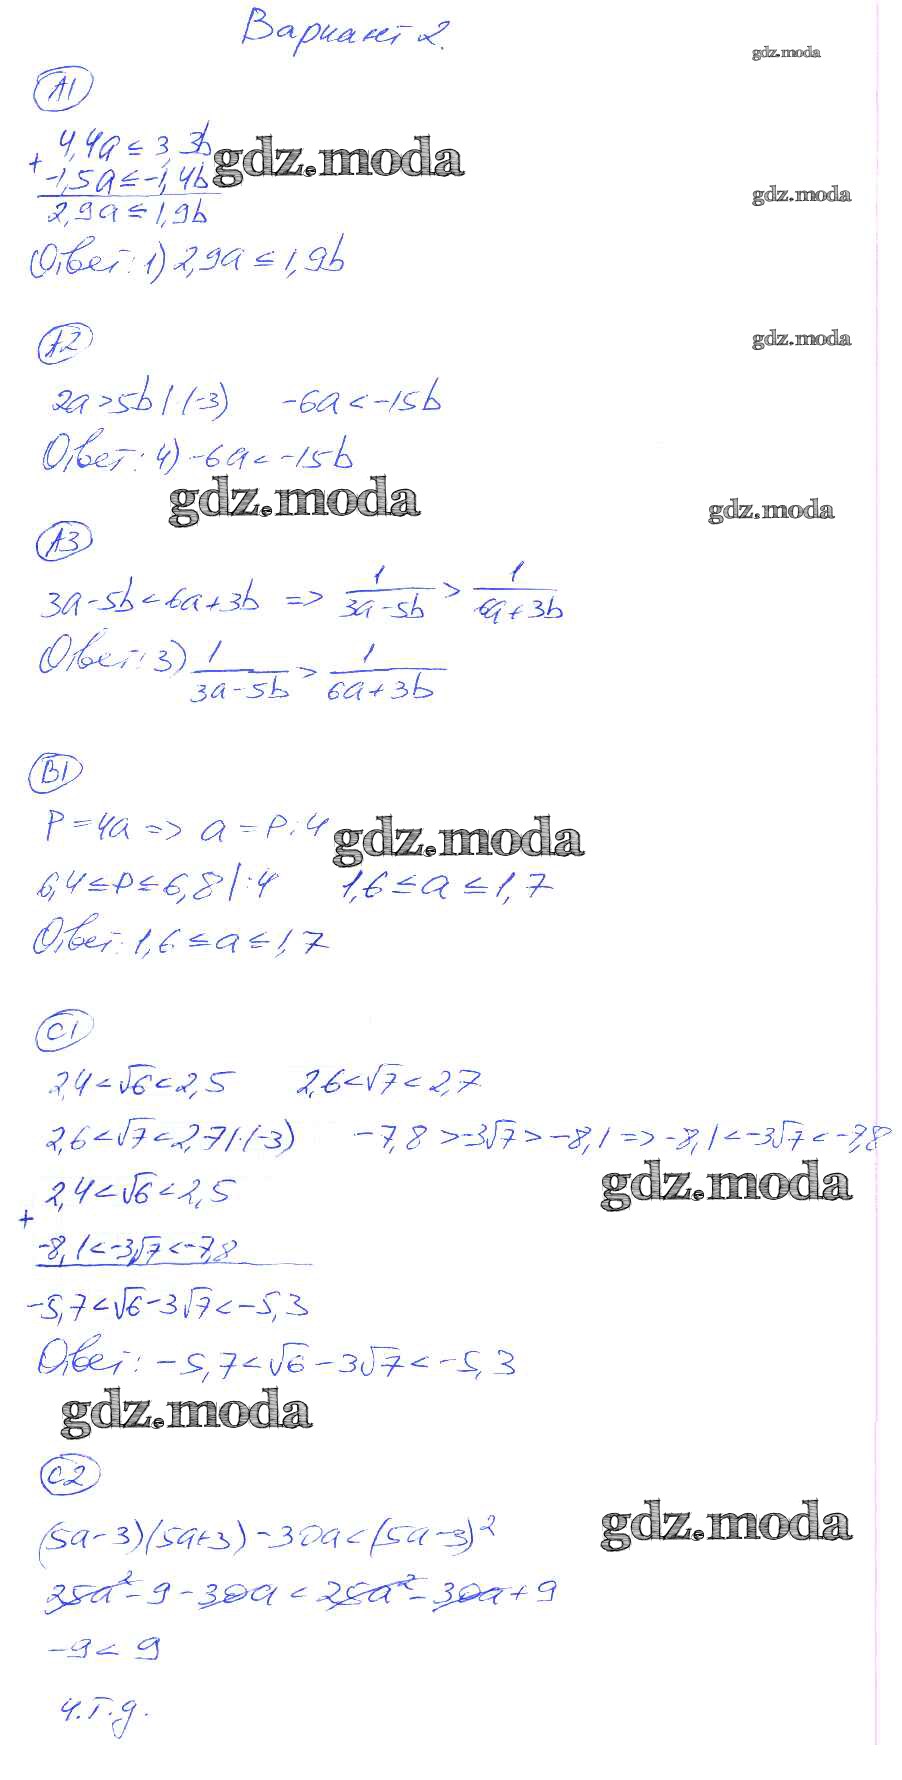 Вариант 2.
gdz.moda
A1
4,4a ≤ 3,3b
gdz.moda
+
-1,5a ≤ -1,4b
gdz.moda
2,9a ≤ 1,9b
Ответ: 1) 2,9a ≤ 1,9b
A2
gdz.moda
2a > 5b | · (-3) -6a < -15b
Ответ: 4) -6a < -15b
gdz.moda
gdz.moda
A3
3a - 5b < 6a + 3b => 1/(3a - 5b) > 1/(6a + 3b)
Ответ: 3) 1/(3a - 5b) > 1/(6a + 3b)
B1
P = 4a => a = P : 4
gdz.moda
6,4 ≤ P ≤ 6,8 | : 4 1,6 ≤ a ≤ 1,7
Ответ: 1,6 ≤ a ≤ 1,7
C1
2,4 < √6 < 2,5 2,6 < √7 < 2,7
2,6 < √7 < 2,7 | · (-3) -7,8 > -3√7 > -8,1 => -8,1 < -3√7 < -7,8
gdz.moda
2,4 < √6 < 2,5
+
-8,1 < -3√7 < -7,8
-5,7 < √6 - 3√7 < -5,3
Ответ: -5,7 < √6 - 3√7 < -5,3
gdz.moda
C2
(5a - 3)(5a + 3) - 30a < (5a - 3)²
gdz.moda
25a² - 9 - 30a < 25a² - 30a + 9
-9 < 9
ч.т.д.